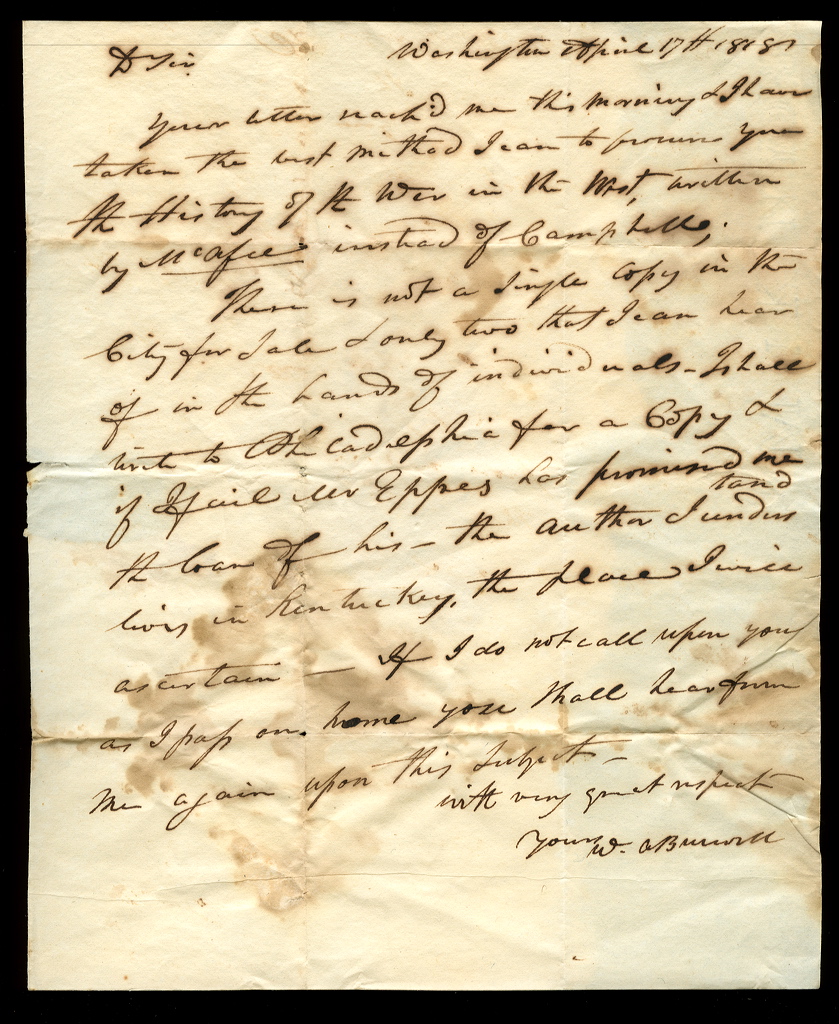 Washington April 17th 1818
D Sir
Your letter reach'd me this morning & I have
taken the best method I can to procure you
the History of the War in the West, written
by McAfee instead of Campbell;
There is not a single Copy in the
City for Sale & only two that I can hear
of in the hands of individuals - I shall
write to Philadelphia for a Copy &
if I fail Mr Eppes has promised me
the loan of his - the author I understand
lives in Kentucky, the place I will
ascertain — If I do not call upon you
as I pass on home you shall hear from
me again upon this Subject -
with very great respect
Yours W. A Burwell